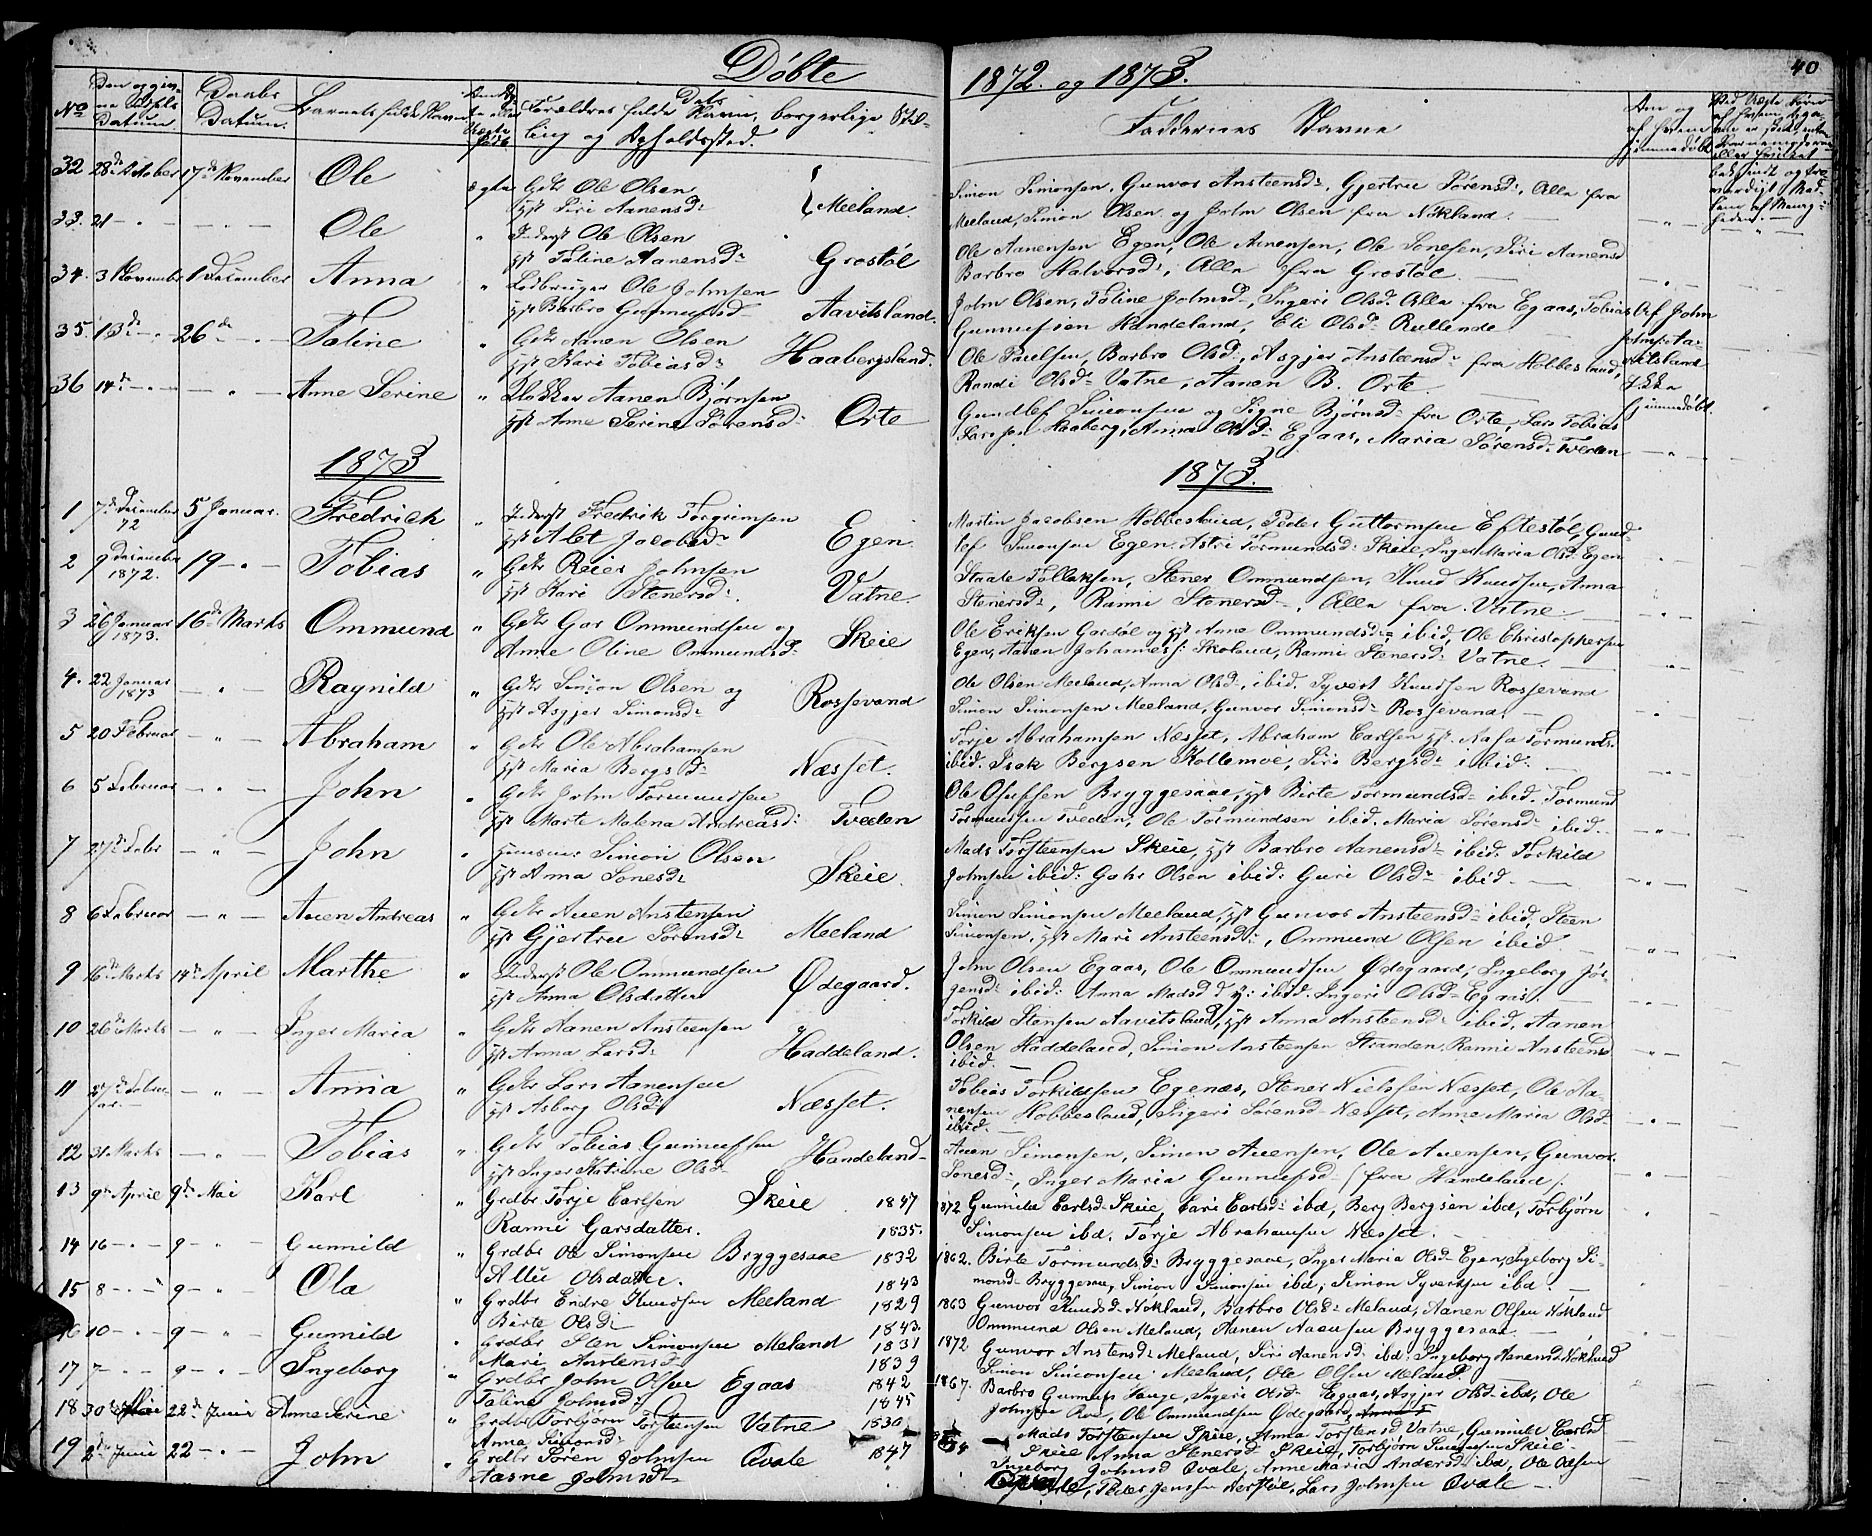 Døbte
1872. og 1873.
40
No
Datum
Daabs Datum.
Barnets fulde Navn
Forældres fulde Navn, borgerlige Stilling og Opholdssted.
Faddernes Navne
32 28de October 17de November Ole ægte Gdbr Ole Olsen
Siri Aanensd: Meeland.
Simon Simonsen, Gunvor Ansteensd:, Gjertrue Sørensd:, Alle fra
Meeland, Simon Olsen og John Olsen fra Nøkland.
33. 21 - " - - " - Ole " Inderst Ole Olsen
Taline Aanensd: Grostøl
Ole Aanensen Egen, Ole Aanensen, Ole Sonesen, Siri Aanensd
Barbro Halvorsd:, Alle fra Grostøl
34. 3 November 1 December Anna " Ole Johnsen
Barbro Gunnufsd Aavitsland.
John Olsen, Taline Johnsd, Ingeri Olsd. Alle fra Egaas, Tobias
Gunnufsen Handeland, Eli Olsd: Rullende
Af John Aavitsland
hjemmedøbt.
35. 13de - " 26de - " - Taline " Gdbr Aanen Olsen
Kari Tobiasd: Haabergsland.
Ole Paulsen, Barbro Olsd:, Asgjer Ansteensd: fra Hobbesland,
Randi Olsd: Vatne, Aanen B. Orte
36 14de - " - - " - Anne Serine " Aanen Bjørnsen
Anne Serine Sørensd: Orte
Gundlef Simonsen og Signe Bjørnsd: fra Orte, Lars Tobias
Larsen Haaberg, Anna Olsd: Egaas, Maria Sørensd: Tveden
1873
1873.
1 7de December 72 5 Januar. Fredrick " Inderst Fredrik Torgrimsen
Alet Jacobsd: Egen.
Martin Jacobsen Hobbesland, Peder Guttormsen Eftestøl, Gund-
lef Simonsen Egen. Astri Tormundsd: Skeie, Inger Maria Olsd: Egen
2 9 December 1872. 19 - " - Tobias " Gdbr Reier Johnsen
Kari Stenersd:. Vatne.
Staale Tollaksen, Stener Ommundsen, Knud Knudsen, Anna
Stenersd:, Rannei Stenersd:, Alle fra Vatne.
3 26 Januar 1873. 16de Marts Ommund " Gdbr Gar Ommundsen og
Anne Oline Ommundsd: Skeie
Ole Eriksen Gardøl og Anne Ommundsd: ibid, Ole Christophersen
Egen, Aanen Johannes: Skoland, Rannei Stenersd: Vatne.
4. 22 Januar 1873 - " - Ragnild " Gdbr Simon Olsen og
Asgjer Simonsd: Rossevand
Ole Olsen Meeland, Anna Olsd:, ibid. Syvert Knudsen Rossevand
Simon Simonsen Meeland, Gunvor Simonsd: Rossevand.
5 20 Februar - " - Abraham " Gdbr Ole Abrahamsen
Maria Bergsd: Næsset.
Torje Abrahamsen Næsset, Abraham Carlsen, Aasa Tormundsd.
ibid. Isak Bergsen Kollemoe, Siri Bergsd: ibid:
6 5 Februar - " - John " Gdbr John Tormundsen
Marte Malena Andreasd: Tveden
Ole Olufsen Bryggesaae, Birte Tormundsd: ibid. Tormund
Tormundsen Tveden, Ole Tormundsen ibid. Maria Sørensd: ibid.
7 27de Febr - " - John " Simon Olsen
Anna Sonesd: Skeie.
Mads Torsteensen Skeie, Barbro Aanensd: ibid. Torkild
Johnsen ibid: Gahr Olsen ibid: Guri Olsd: ibid.
8 6 Februar - " - Auen Andreas " Gdbr Auen Anstensen
Gjertrue Sørensd: Meeland
Simon Simonsen Meeland, Gunvor Ansteensd: ibid: Steen
Simonsen, Mari Ansteensd:, Ommund Olsen ibid
9 16de Marts 14de April Marthe " Inderst Ole Ommundsen
Anna Olsdatter Ødegaard.
John Olsen Egaas, Ole Ommundsen Ødegaard, Ingeborg Jør-
gensd: ibid: Anna Madsd: ibid. Ingeri Olsd: Egaas.
10 26de Marts - " - Inger Maria " Gdbr Aanen Ansteensen
Anna Larsd: Haddeland.
Torkild Stensen Aavitsland, Anna Ansteensd: ibid, Aanen
Olsen Haddeland, Simon Ansteensen Stranden, Rannei Ansteensd
ibid.
11 27de Februar. - " - Anna " Gdbr Lars Aanensen
Asborg Olsd: Næsset.
Tobias Torkildsen Egenæs, Stener Nielsen Næsset, Ole Aa-
nensen Hobbesland, Ingeri Sørensd: Næsset, Anne Maria Olsd:
ibid.
12 31 Marts - " - Tobias " Gdbr Tobias Gunnufsen
Inger Katrine Olsd: Handeland
Auen Simonsen, Simon Auensen, Ole Auensen, Gunvor
Sonesd:, Inger Maria Gunnufsd: fra Handeland.
13 9de April 9de Mai Karl " Grdbr Torje Carlsen Skeie 1847
Rannei Garsdatter. 1835.
1872 Gunnild Carlsd: Skeie, Cari Carlsd: ibd, Berg Bergsen ibd, Torbjørn
Simonsen ibd. Torje Abrahamsen Næsset.
14 16 - " - 9 - " Gunnild " Grdbr Ole Simonsen Bryggesaae 1832
Allie Olsdatter. 1843
1862. Birte Tormundsd: Bryggesaae, Inger Maria Olsd: Egen, Ingeborg Si-
monsd: Bryggesaae, Simon Simonsen ibd; Simon Syvertsen ibd.
15 8 - " - 9 - " Ola " Grdbr Endre Knudsen Meeland 1829
Birte Olsd: 1843.
1863 Gunvor Knudsd: Nøkland, Barbro Olsd: Meland, Aanen Olsen Nøkland
Ommund Olsen Meland, Aanen Aanensen Bryggesaae.
16 10 - " - 9 - " Gunnild " Grdbr Sten Simonsen Meland 1831
Mari Anstensd: 1839
1872 Gunvor Anstensd: Meland, Siri Aanensd: ibd: Ingeborg Aanensd: Nøkland
Simon Simonsen Meeland, Ole Olsen Meland.
17 7 - " - 9 - " Ingeborg " Grdbr John Olsen Egaas 1842
Taline Johnsd: 1845
1867. Barbro Gunnufs Hauge, Ingeri Olsd: Egaas, Asgjer Olsd: ibd, Ole
Johnsen Roe, Ole Ommundsen Ødegaard,
18 30te Mai 22de Juni Anne Serine " Grdbr Torbjørn Torstensen Vatne 1830
Anne Simonsd:
Mads Torstensen Skeie, Anna Torstensd Vatne, Gunnild Carlsd
Skeie Anna Stenersd: Skeie, Torbjørn Simonsen Skeie
19 2de Juni 22 - " - John " Grdbr Søren Johnsen Qvale 1847
Aasne Johnsd:
Ingeborg Johnsd Qvale, Anne Maria Andersd: ibd, Ole Olsen
Peder Jenssen, Lars Johnsen Qvale